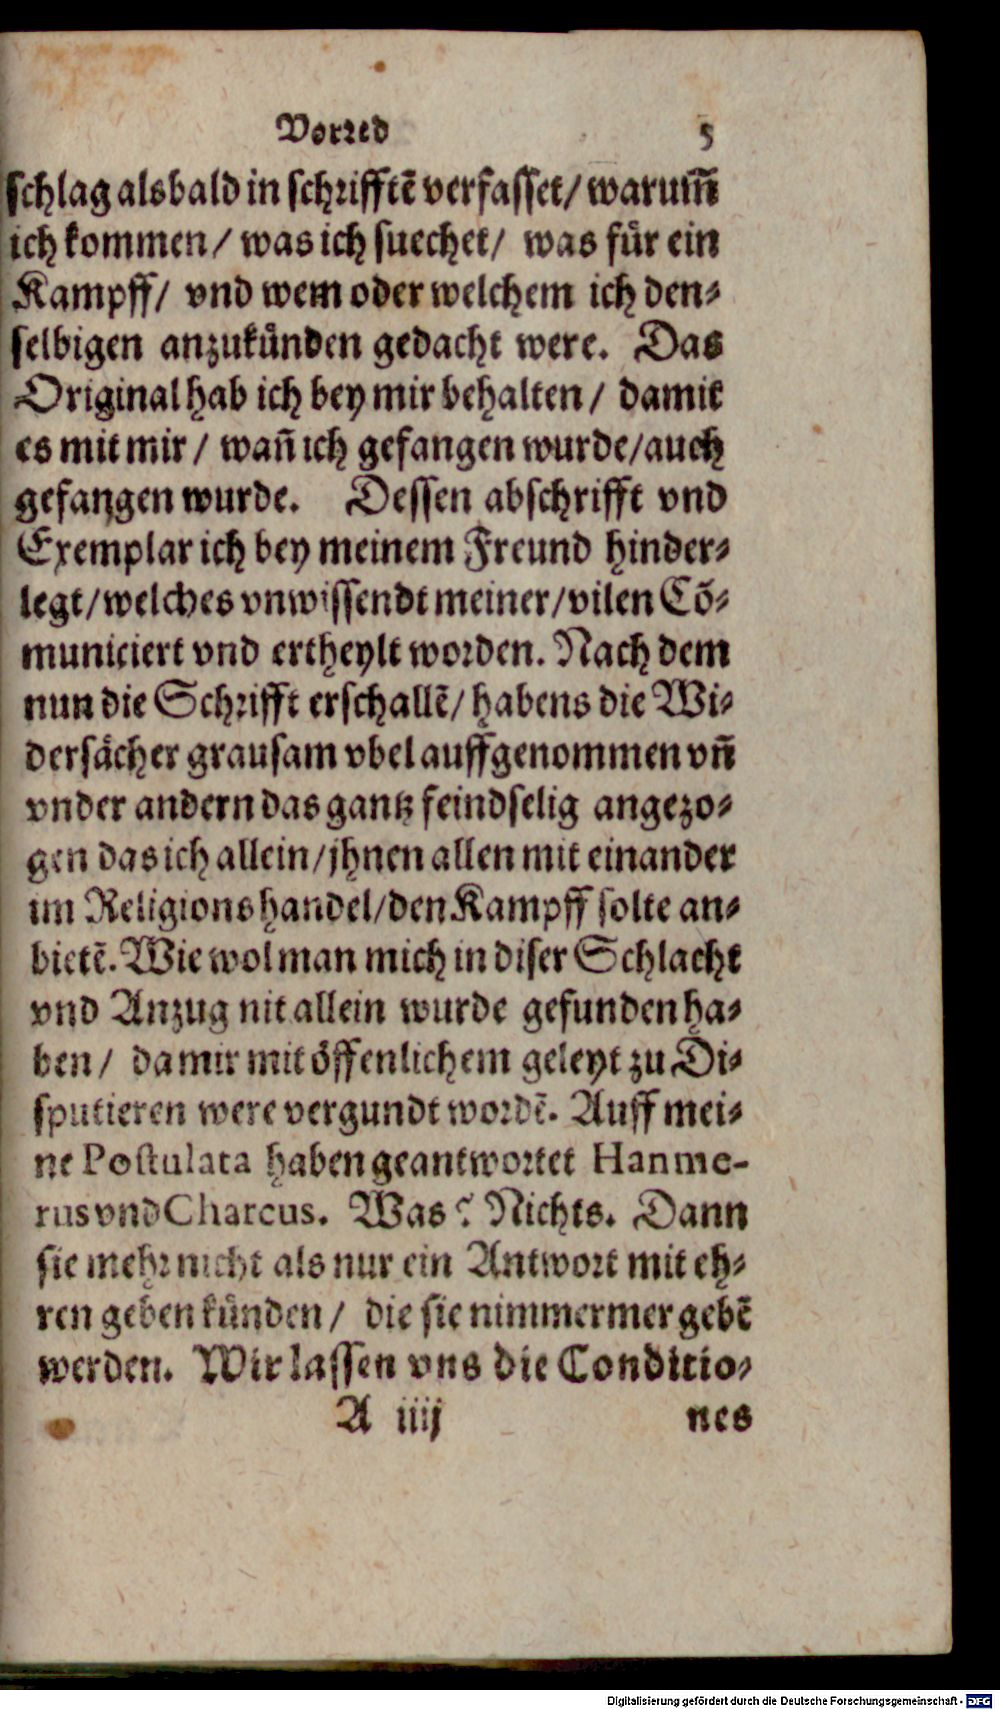 Vorred 5
schlag alsbald in schrifftē verfasset/ warum̄
ich kommen/ was ich suechet/ was für ein
Kampff/ vnd wem oder welchem ich den-
selbigen anzukünden gedacht were. Das
Original hab ich bey mir behalten/ damit
es mit mir/ wañ ich gefangen wurde/ auch
gefangen wurde. Dessen abschrifft vnd
Exemplar ich bey meinem Freund hinder-
legt/ welches vnwissendt meiner/ vilen Cō-
municiert vnd ertheylt worden. Nach dem
nun die Schrifft erschallē/ habens die Wi-
dersächer grausam vbel auffgenommen vñ
vnder andern das gantz feindselig angezo-
gen das ich allein/ jhnen allen mit einander
im Religions handel/ den Kampff solte an-
bietē. Wie wol man mich in diser Schlacht
vnd Anzug nit allein wurde gefunden ha-
ben/ da mir mit öffenlichem geleyt zu Di-
sputieren were vergundt wordē. Auff mei-
ne Postulata haben geantwortet Hanme-
rus vnd Charcus. Was? Nichts. Dann
sie mehr nicht als nur ein Antwort mit eh-
ren geben künden/ die sie nimmermer gebē
werden. Wir lassen vns die Conditio-
A iiij nes
Digitalisierung gefördert durch die Deutsche Forschungsgemeinschaft - DFG